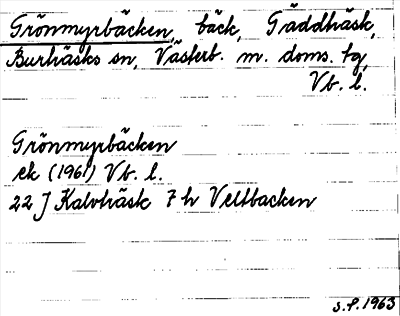 Grönmyrbäcken, bäck, Gäddträsk,
Burträsks sn, Västerb. m. doms. tg,
Vb. l.
Grönmyrbäcken
ek (1961) Vb. l.
22 J Kalvträsk 7 h Veltbacken
S.P. 1963